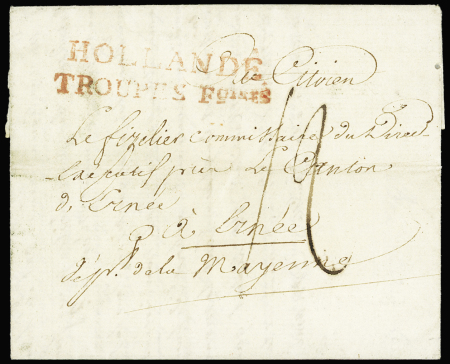 HOLLANDE
TROUPES Fçaises
Au Citoien
Le commissaire du Direct
Executif près Le Canton
d'Ernée
à Ernée
Dépt. de la Mayenne